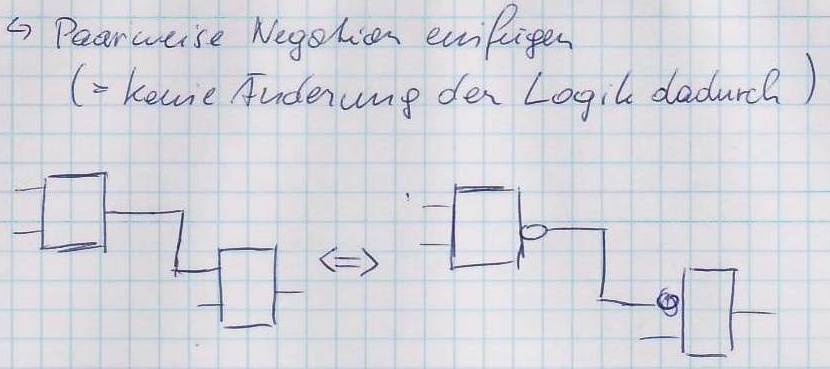 ↳ Paarweise Negation einfügen
(= keine Änderung der Logik dadurch)
⇔